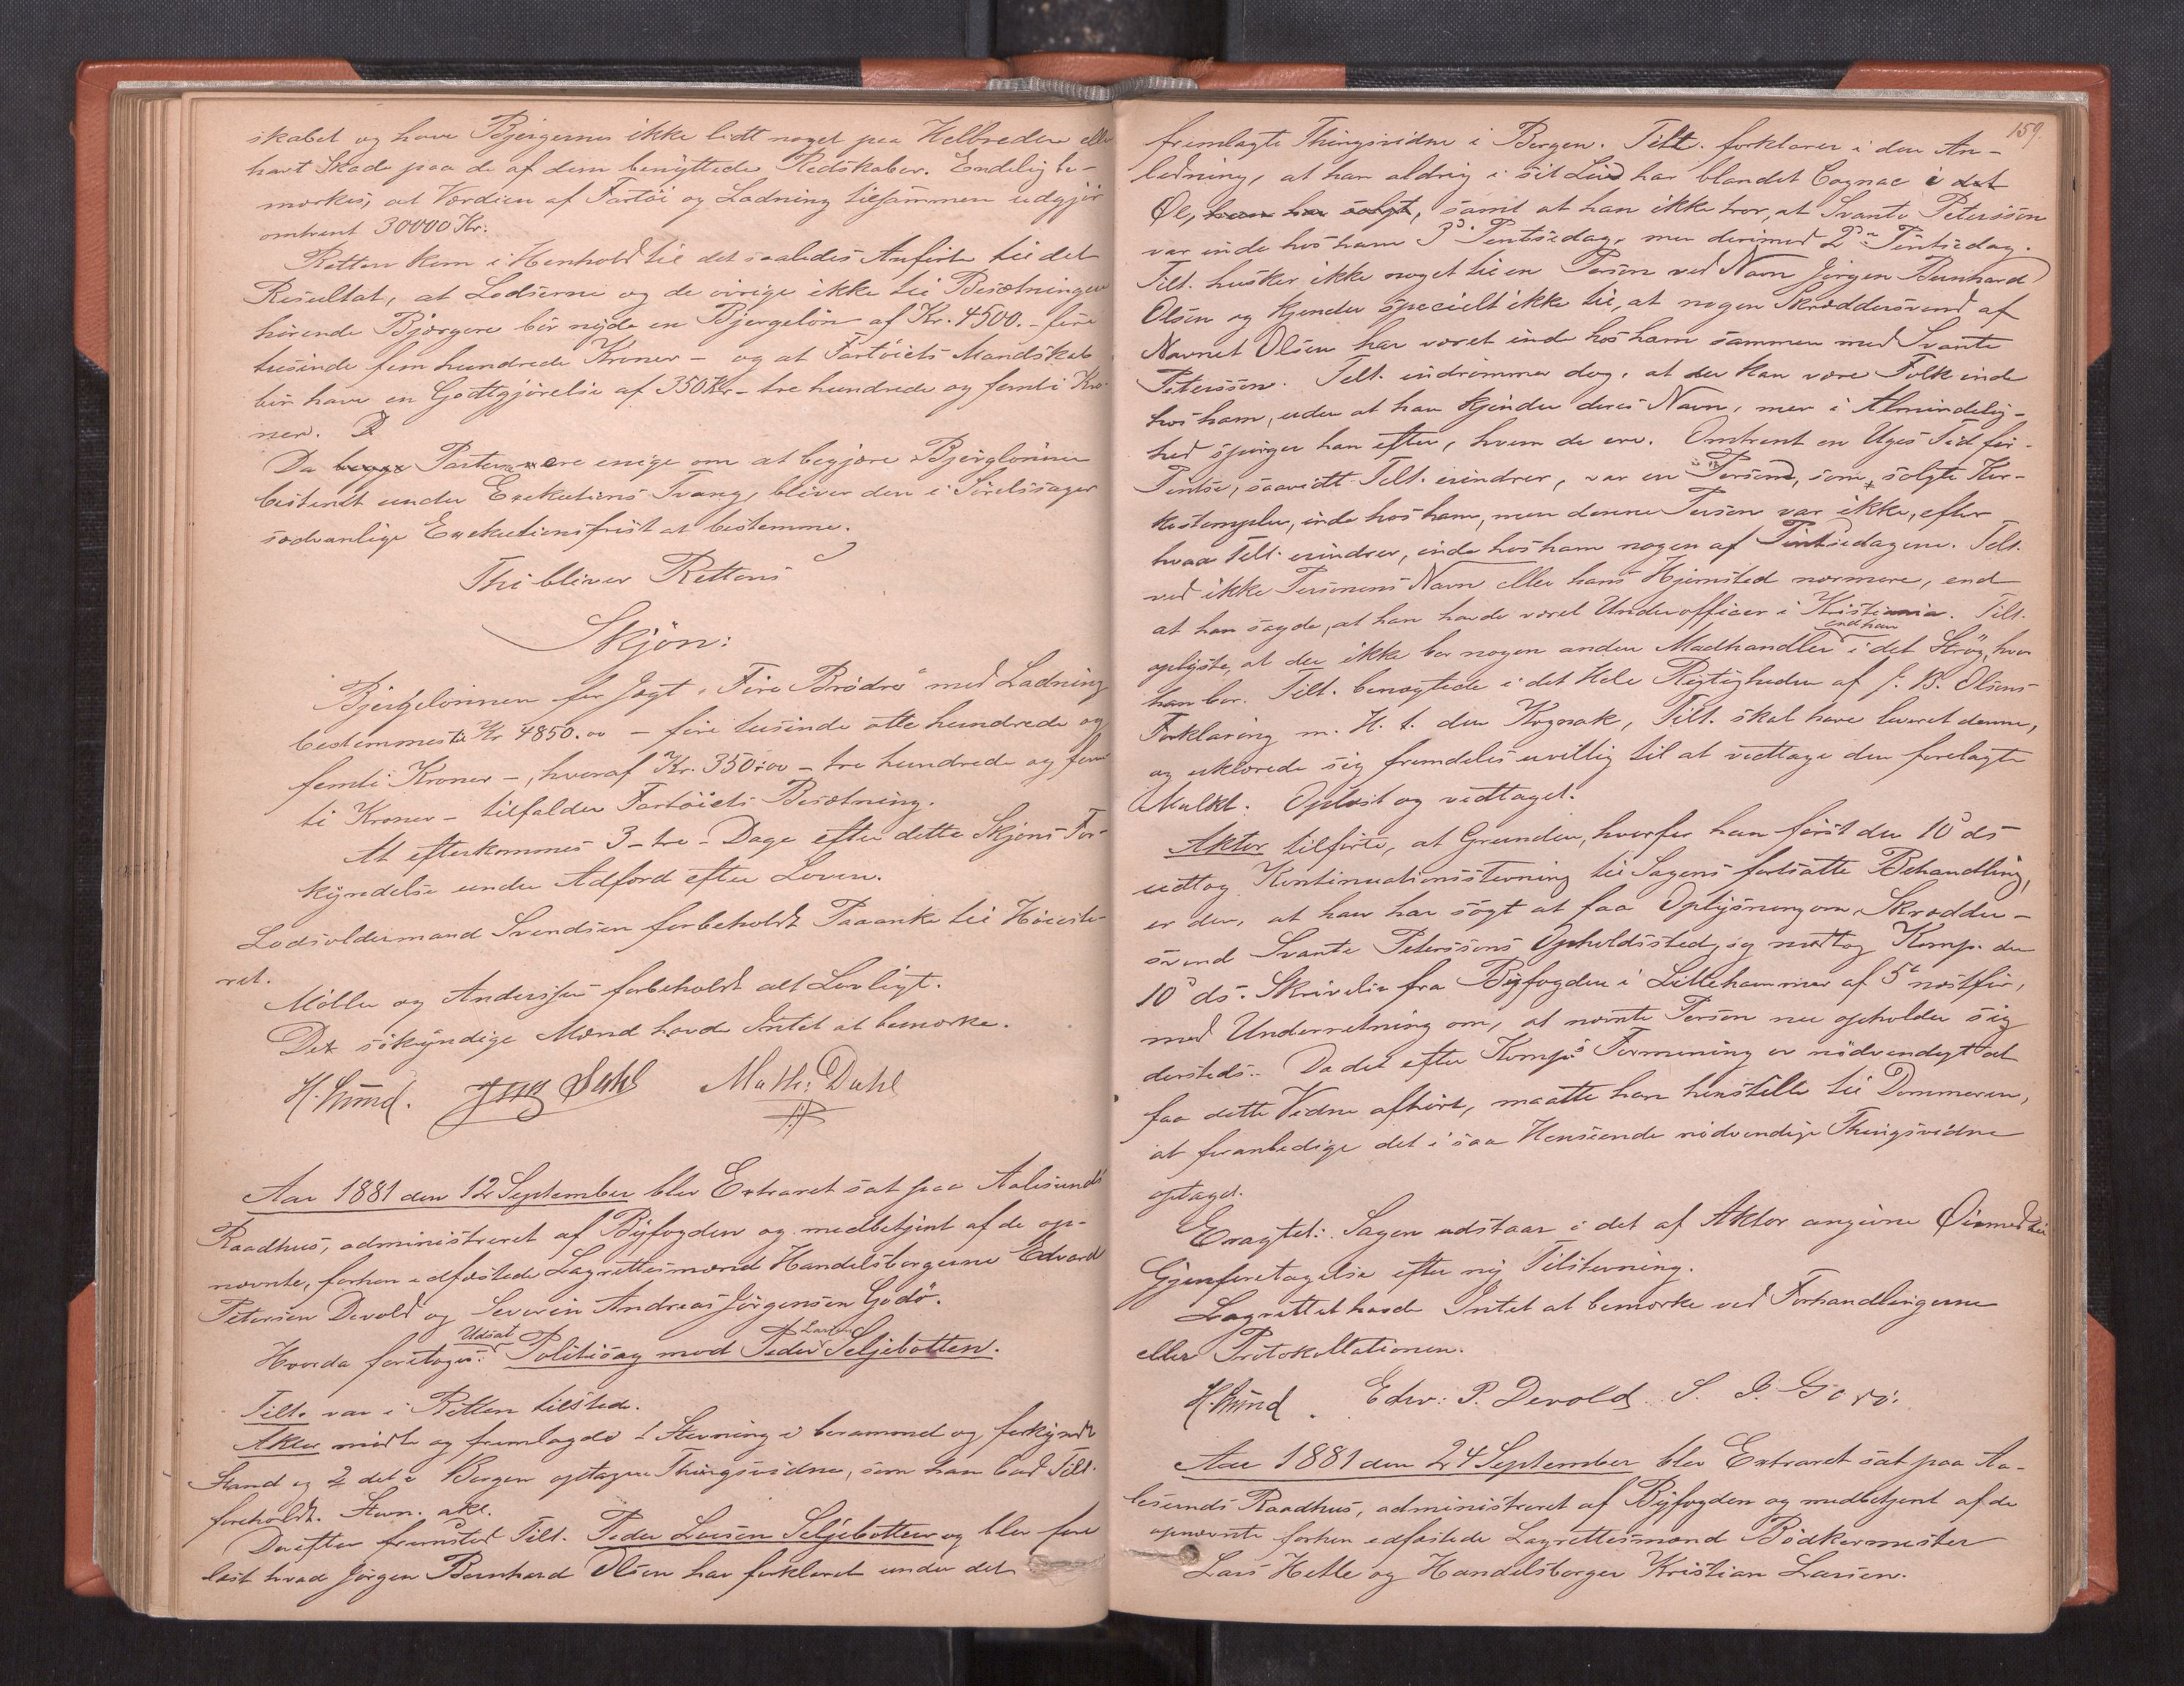 skabet og have Bjergerne ikke lidt noget paa Helbreden eller
havt Skade paa de af dem benyttede Redskaber. Endelig be-
mærkes, at Værdien af Fartöi og Ladning tilsammen udgjör
omtrent 30000 Kr.
Retten kom i Henhold til det saaledes Anförte til det
Resultat, at Lodserne og de övrige ikke til Besætningen
hörende Bjærgere bör nyde en Bjergelön af Kr. 4500. - fire
tusinde fem hundrede Kroner - og at Fartöiets Mandskab
bör have en Godtgjörelse af 350 Kr - tre hundrede og femti Kro-
ner. D
Da begge Parterne ere enige om at begjære Bjerglönnen
bestemt under Exekutions Tvang, bliver den i Sörelssager
sædvanlige Exekutionsfrist at bestemme.
Thi bliver Rettens
Skjön:
Bjergelönnen for Jagt "Fire Brödre" med Ladning
bestemmes til Kr 4850.00 - fire tusinde otte hundrede og
femti Kroner -, hvoraf Kr. 350:00 - tre hundrede og fem-
ti Kroner - tilfalder Fartöiets Besætning.
At efterkommes 3 - tre - Dage efter dette Skjöns For-
kyndelse under Adförd efter Loven.
Lodsoldermand Svendsen forbeholdt Paaanke til Höieste-
ret.
Möller og Andersen forbeholdt alt Lovligt.
De sökyndige Mænd havde Intet at bemærke.
H. Lund. Dahl Math: Dahl
Aar 1881 den 12 September blev Extraret sat paa Aalesunds
Raadhus, administreret af Byfogden og medbetjent af de op-
nævnte, forhen edfæstede Lagrettesmænd Handelsborgerne Edvard
Petersen Devold og Severin Andreas Jörgensen Godö.
Udsat Larsen
Hvorda foretoges: Politisag mod Peder Seljebotten.
Tilt. var i Retten tilstede.
Aktor mödte og fremlagde 1 Stevning i berammed og forkyndt
Stand og 2 det i Bergen optagne Thingsvidne, som han bad Tilt.
foreholdt. Stevn. akt.
Derefter fremstod Tilt. Peder Larsen Seljebotten og blev fore
læst hvad Jörgen Bernhard Olsen har forklaret under det
159.
fremlagte Thingsvidne i Bergen. Tilt. forklarer i den An-
ledning, at han aldrig i sit Liv har blandet Cognac i det
Øl, han har solgt, samt at han ikke tror, at Svante Peterssen
var inde hos ham 3d Pentsedag, men derimod 2den Pentsedag.
Tilt. husker ikke noget til en Person ved Navn Jörgen Bernhard
Olsen og kjender specielt ikke til, at nogen Skræddersvend af
Navnet Olsen har været inde hos ham sammen med Svante
Peterssen. Tilt. indrömmer dog, at der kan være Folk inde
hos ham, uden at han kjender deres Navn, men i Almindelig-
hed spörger han efter, hvem de ere. Omtrent en Uges Tid för
Pentse, saavidt Tilt. erindrer, var en Person, som solgte Kor-
kestempler, inde hos ham, men denne Person var ikke, efter
hvad Tilt. erindrer, inde hos ham nogen af Pintsedagene. Tilt.
ved ikke Personens Navn eller hans Hjemsted nærmere, end
at han sagde, at han havde været Underofficer i Kristiania. Tilt.
end han
oplyste, at der ikke bor nogen anden Madhandler i det Strög, hvor
han bor. Tilt. benægtede i det Hele Rigtigheden af J. B. Olsens
Forklaring m. H. t. den Kognak, Tilt. skal have leveret denne,
og erklærede sig fremdeles uvillig til at vedtage den forelagte
Mulkt. Oplæst og vedtaget.
Aktor tilförte, at Grunden, hvorfor han först den 10d ds
udtog Kontinuationsstevning til Sagens fortsatte Behandling,
er den, at han har sögt at faa Oplysning om Skrædder-
svend Svante Peterssens Opholdssted, og modtog Komp. den
10d ds. Skrivelse fra Byfogden i Lillehammer af 5t næstför,
med Underretning om, at nævnte Person nu opholder sig
dersteds. Da det efter Komp.s Formening er nödvendigt at
faa dette Vidne afhört, maatte han henstille til Dommeren,
at foranledige det i saa Henseende nödvendige Thingsvidne
optaget.
Eragtet: Sagen udstaar i det af Aktor angivne Øiemed til
Gjenforetagelse efter ny Tilstevning.
Lagrettet havde Intet at bemærke ved Forhandlingerne
eller Protokollationen.
H. Lund. Edv: P. Devold S. J. Godö:
Aar 1881 den 24 September blev Extraret sat paa Aa-
lesunds Raadhus, administreret af Byfogden og medbetjent af de
opnævnte forhen edfæstede Lagrettesmænd Bödkermester
Lars Helle og Handelsborger Kristian Larsen.